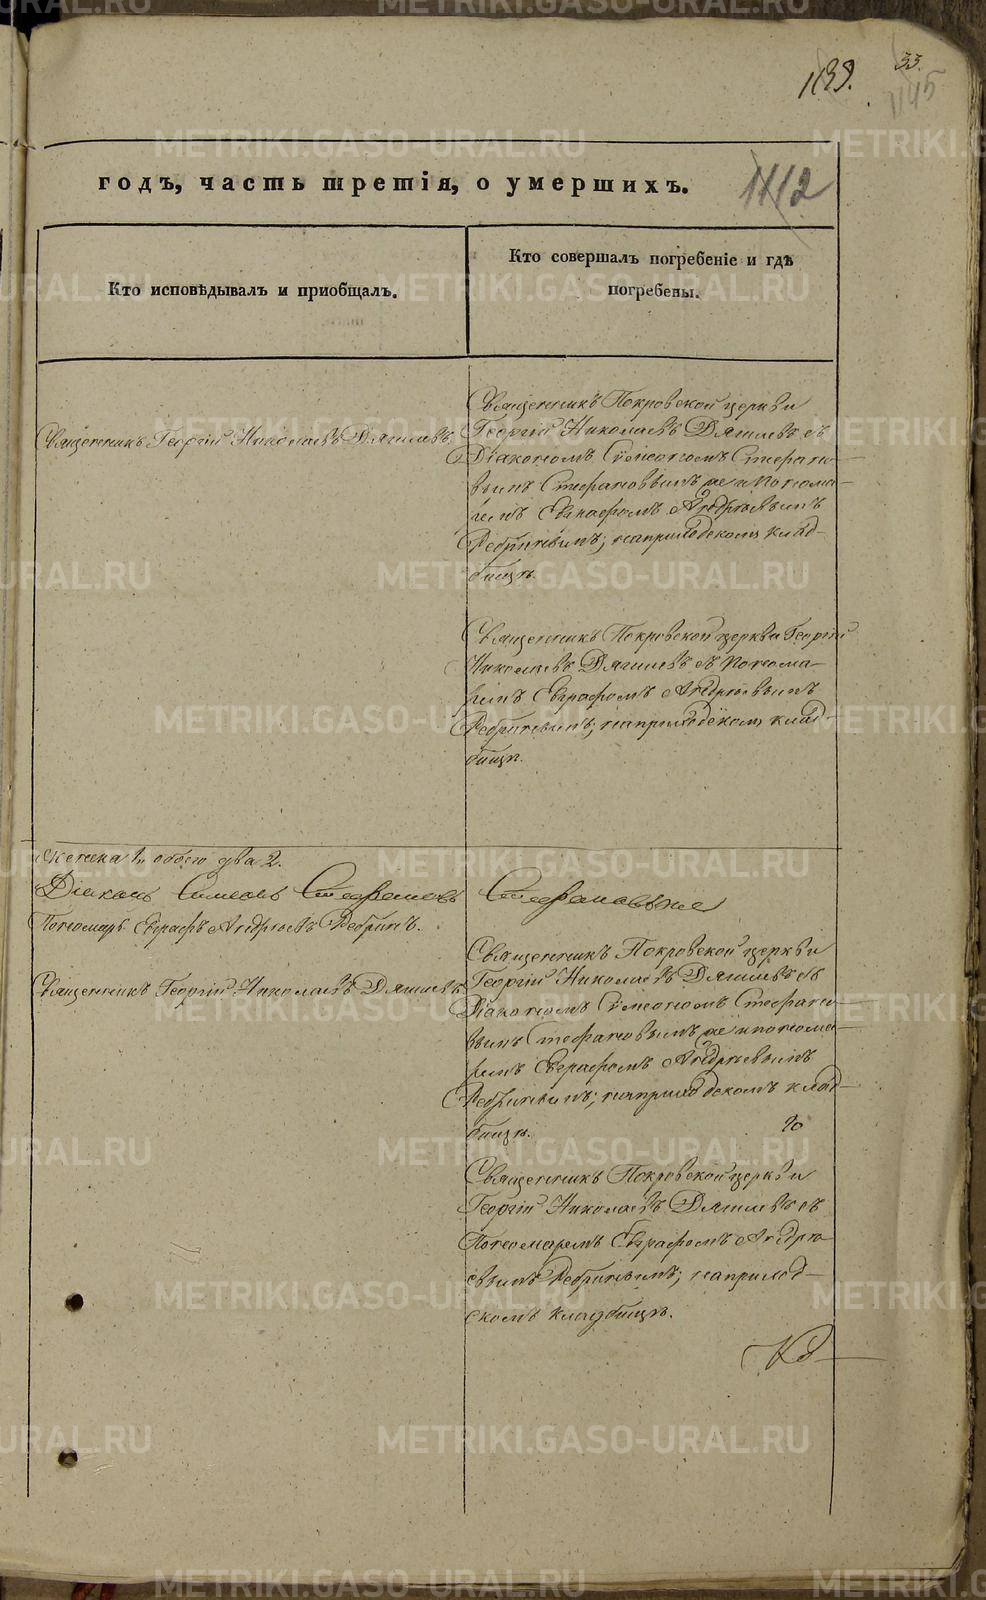 1139.
33.
1145
1112
годъ, часть третія, о умершихъ.
Кто исповѣдывалъ и пріобщалъ.
Кто совершалъ погребеніе и гдѣ
погребены.
Священникъ Георгій Николаевъ Дягилевъ.
Священникъ Покровской церкви
Георгій Николаевъ Дягилевъ съ
Діакономъ Сѵмеономъ Стефано-
вымъ Стефановымъ же и Понома-
ремъ Евграфомъ Андреевымъ
Ребринымъ; на приходскомъ клад-
бищѣ.
Священникъ Покровской церкви Георгій
Николаевъ Дягилевъ съ Понома-
ремъ Евграфомъ Андреевымъ
Ребринымъ; на приходскомъ клад-
бищѣ.
женска 1, обоего два 2.
Діаконъ Симеонъ Стефановъ Стефановъ же
Пономарь Евграфъ Андреевъ Ребринъ.
Священникъ Георгій Николаевъ Дягилевъ
Священникъ Покровской церкви
Георгій Николаевъ Дягилевъ съ
Діакономъ Сѵмеономъ Стефано-
вымъ Стефановымъ же и понома-
ремъ Евграфомъ Андреевымъ
Ребринымъ; на приходскомъ клад-
бищѣ.
Священникъ Покровской церкви
Георгій Николаевъ Дягилевъ съ
Пономаремъ Евграфомъ Андре-
евымъ Ребринымъ; на приход-
скомъ кладбищѣ.
METRIKI.GASO-URAL.RU